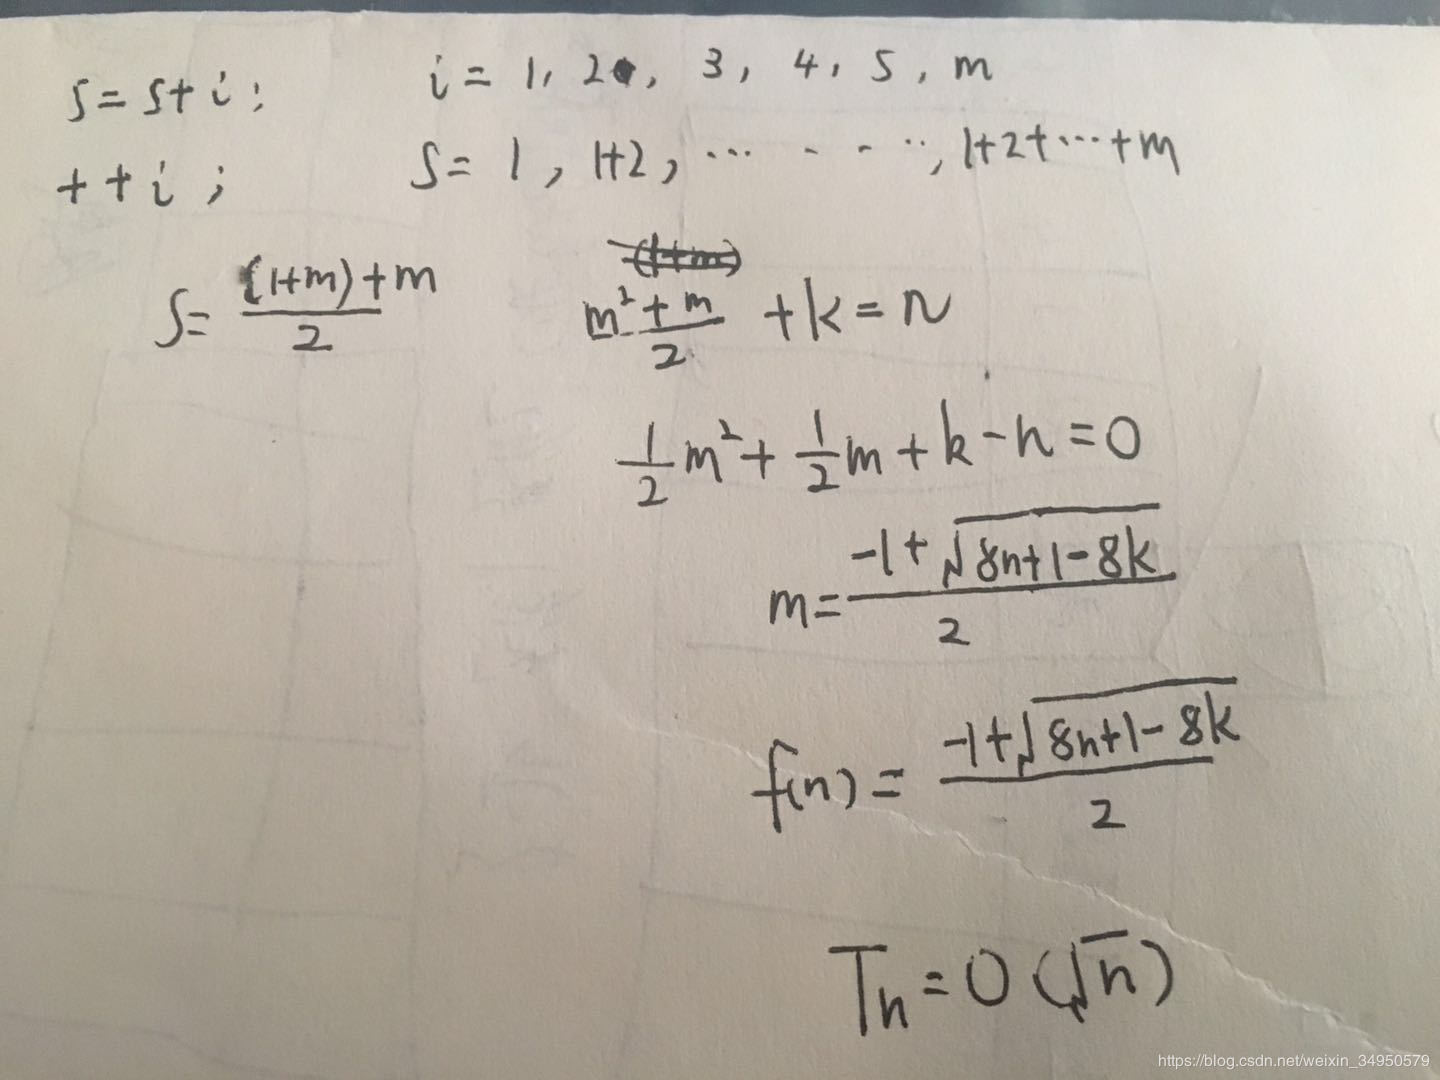 s=s+i;
i=1, 2, 3, 4, 5, m
++i;
S=1, 1+2, ··· - - ··, 1+2+···+m
S=\frac{(1+m)+m}{2}
(1+m)
\frac{m²+m}{2}+k=n
\frac{1}{2}m²+\frac{1}{2}m+k-n=0
m=\frac{-1+\sqrt{8n+1-8k}}{2}
f(n)=\frac{-1+\sqrt{8n+1-8k}}{2}
Tn=O(\sqrt{n})
https://blog.csdn.net/weixin_34950579